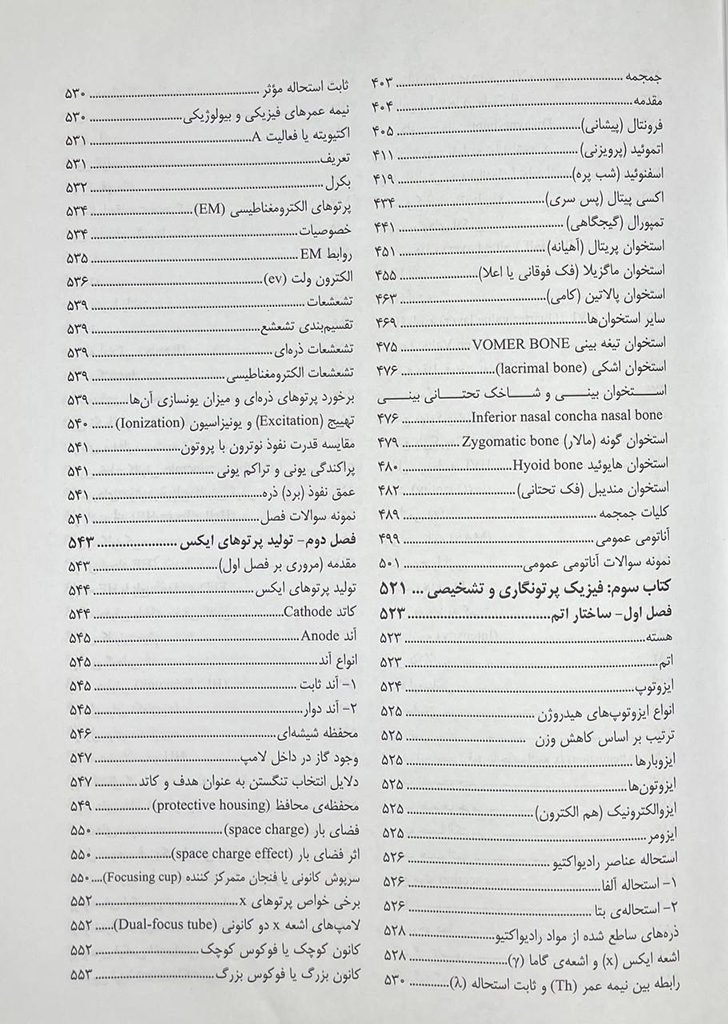 جمجمه ..... ۴۰۳
مقدمه ..... ۴۰۴
فرونتال (پیشانی) ..... ۴۰۵
اتموئید (پرویزنی) ..... ۴۱۱
اسفنوئید (شب پره) ..... ۴۱۹
اکسی پیتال (پس سری) ..... ۴۳۴
تمپورال (گیجگاهی) ..... ۴۴۱
استخوان پریتال (آهیانه) ..... ۴۵۱
استخوان ماگزیلا (فک فوقانی یا اعلا) ..... ۴۵۵
استخوان پالاتین (کامی) ..... ۴۶۳
سایر استخوان‌ها ..... ۴۶۹
استخوان تیغه بینی VOMER BONE ..... ۴۷۵
استخوان اشکی (lacrimal bone) ..... ۴۷۶
استخوان بینی و شاخک تحتانی بینی
Inferior nasal concha nasal bone ..... ۴۷۶
استخوان گونه (مالار) Zygomatic bone ..... ۴۷۹
استخوان هایوئید Hyoid bone ..... ۴۸۰
استخوان مندیبل (فک تحتانی) ..... ۴۸۲
کلیات جمجمه ..... ۴۸۹
آناتومی عمومی ..... ۴۹۹
نمونه سوالات آناتومی عمومی ..... ۵۰۱
کتاب سوم: فیزیک پرتونگاری و تشخیصی ... ۵۲۱
فصل اول- ساختار اتم ..... ۵۲۳
هسته ..... ۵۲۳
اتم ..... ۵۲۳
ایزوتوپ ..... ۵۲۴
انواع ایزوتوپ‌های هیدروژن ..... ۵۲۵
ترتیب بر اساس کاهش وزن ..... ۵۲۵
ایزوبارها ..... ۵۲۵
ایزوتون‌ها ..... ۵۲۵
ایزوالکترونیک (هم الکترون) ..... ۵۲۵
ایزومر ..... ۵۲۵
استحاله عناصر رادیواکتیو ..... ۵۲۶
۱- استحاله آلفا ..... ۵۲۶
۲- استحاله‌ی بتا ..... ۵۲۶
ذره‌های ساطع شده از مواد رادیواکتیو ..... ۵۲۸
اشعه ایکس (x) و اشعه‌ی گاما (γ) ..... ۵۲۸
رابطه بین نیمه عمر (Th) و ثابت استحاله (λ) ..... ۵۳۰
ثابت استحاله مؤثر ..... ۵۳۰
نیمه عمرهای فیزیکی و بیولوژیکی ..... ۵۳۰
اکتیویته یا فعالیت A ..... ۵۳۱
تعریف ..... ۵۳۱
بکرل ..... ۵۳۲
پرتوهای الکترومغناطیسی (EM) ..... ۵۳۴
خصوصیات ..... ۵۳۴
روابط EM ..... ۵۳۵
الکترون ولت (ev) ..... ۵۳۶
تشعشعات ..... ۵۳۹
تقسیم‌بندی تشعشع ..... ۵۳۹
تشعشعات ذره‌ای ..... ۵۳۹
تشعشعات الکترومغناطیسی ..... ۵۳۹
برخورد پرتوهای ذره‌ای و میزان یونسازی آن‌ها ..... ۵۳۹
تهییج (Excitation) و یونیزاسیون (Ionization) ..... ۵۴۰
مقایسه قدرت نفوذ نوترون با پروتون ..... ۵۴۱
پراکندگی یونی و تراکم یونی ..... ۵۴۱
عمق نفوذ (برد) ذره ..... ۵۴۱
نمونه سوالات فصل ..... ۵۴۱
فصل دوم- تولید پرتوهای ایکس ..... ۵۴۳
مقدمه (مروری بر فصل اول) ..... ۵۴۳
تولید پرتوهای ایکس ..... ۵۴۴
کاتد Cathode ..... ۵۴۴
آند Anode ..... ۵۴۵
انواع آند ..... ۵۴۵
۱- آند ثابت ..... ۵۴۵
۲- آند دوار ..... ۵۴۵
محفظه شیشه‌ای ..... ۵۴۶
وجود گاز در داخل لامپ ..... ۵۴۷
دلایل انتخاب تنگستن به عنوان هدف و کاتد ..... ۵۴۷
محفظه‌ی محافظ (protective housing) ..... ۵۴۹
فضای بار (space charge) ..... ۵۵۰
اثر فضای بار (space charge effect) ..... ۵۵۰
سرپوش کانونی یا فنجان متمرکز کننده (Focusing cup) ..... ۵۵۰
برخی خواص پرتوهای x ..... ۵۵۲
لامپ‌های اشعه x دو کانونی (Dual-focus tube) ..... ۵۵۲
کانون کوچک یا فوکوس کوچک ..... ۵۵۲
کانون بزرگ یا فوکوس بزرگ ..... ۵۵۳